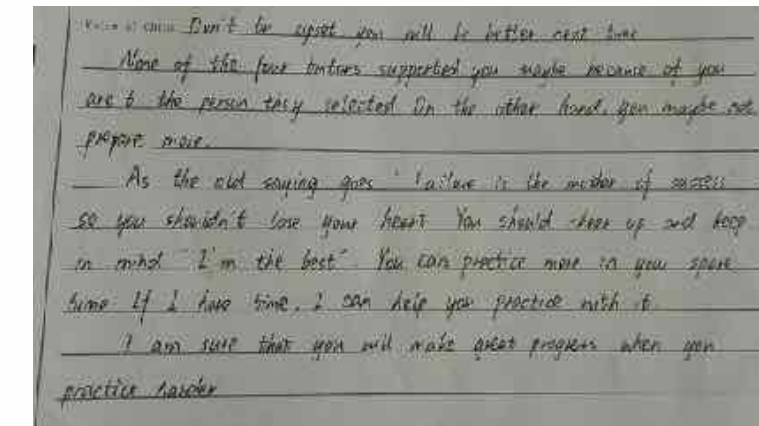 Voice of China Don't be upset you will be better next time
None of the four tutors supported you maybe because of you
are t the person they selected On the other hand, you maybe not
prepare more.
As the old saying goes " Failure is the mother of success
so you shouldn't lose your heart You should cheer up and keep
in mind " I'm the best". You can practice more in your spare
time If I have time, I can help you practice with it.
I am sure that you will make great progress when you
practice harder